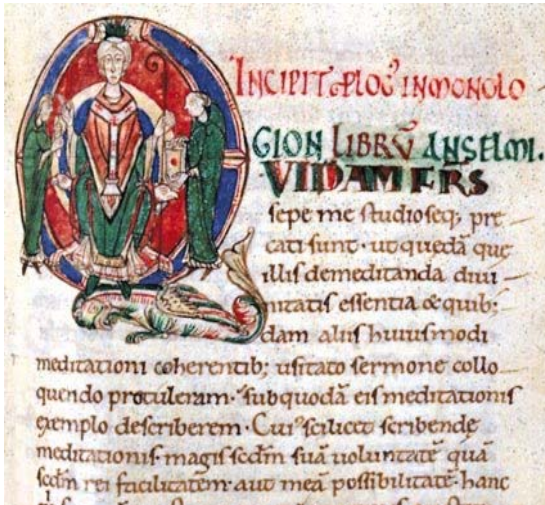 INCIPIT PLOG' IN MONOLO
GION LIBRŪ ANSELMI.
QUIDAM FRS
sepe me studioseq; pre
cati sunt · ut quedā que
illis de meditanda diui
nitatis essentia & quib;
dam aliis huiusmodi
meditationi coherentib; usitato sermone collo
quendo protuleram · sub quodā eis meditationis
exemplo describerem · Cui' scilicet scribendę
meditationis magis scdm suā uoluntatē quā
scdm rei facilitatem aut meā possibilitatē · hanc